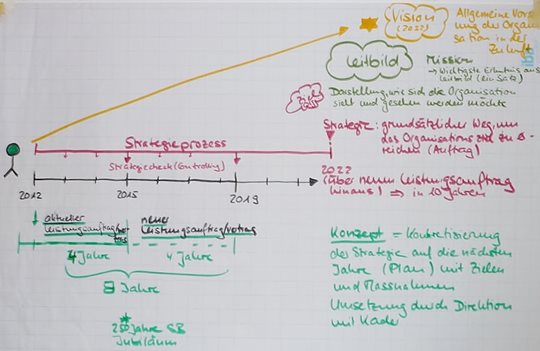 Vision
(2022)
Allgemeine Vors
ung der Organ
sation in der
Zukunft
Leitbild
Mission
→ Wichtigste Erkenntnis aus
Leitbild (ein Satz)
Darstellung, wie sich die Organisation
sieht und gesehen werden möchte
Strategie: grundsätzlicher Weg, um
das Organisationsziel zu e-
reichen (Auftrag)
Strategieprozess
Strategiecheck (Controlling)
2012
2015
2019
2022
(über neuen Leistungsauftrag
hinaus) ⇒ in 10 Jahren
aktueller
Leistungsauftrag/
neuer
Leistungsauftrag/vertrag
4 Jahre
4 Jahre
8 Jahre
Konzept = Konkretisierung
der Strategie auf die nächsten
Jahre (Plan) mit Zielen
und Massnahmen
Umsetzung durch Direktion
mit Kader
Jahre
Jubiläum